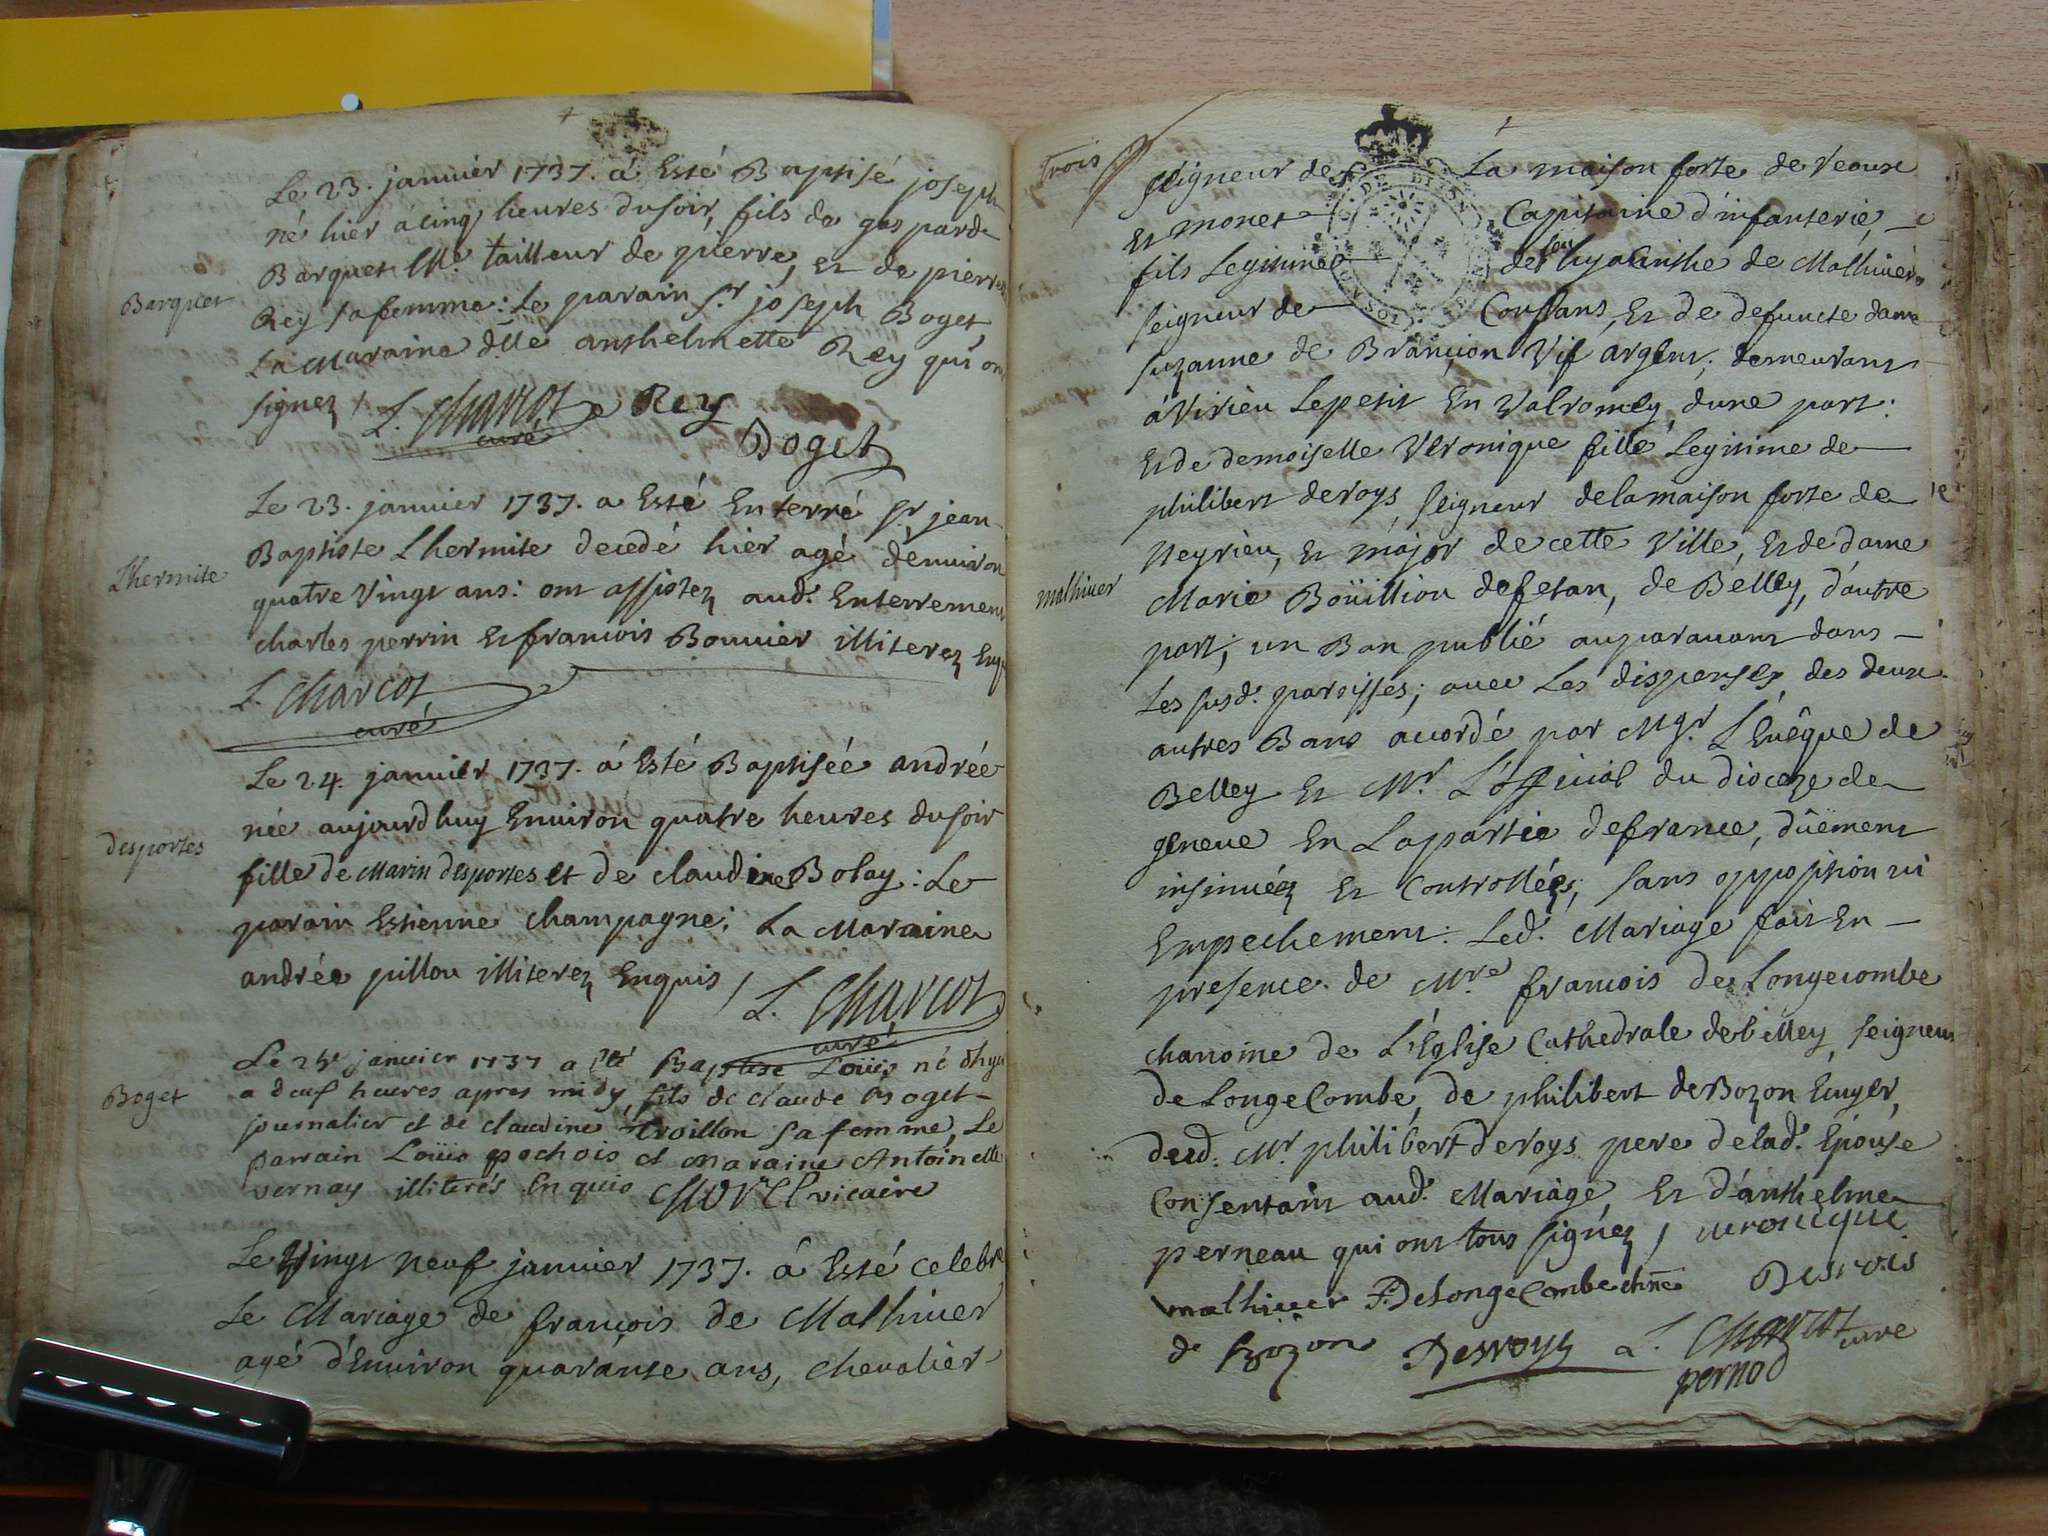 Le 23. janvier 1737. á Esté Baptisé joseph
né hier ácinq heures dusoir, fils de gaspard
Barquet Me. tailleur de pierre, et de pierre
Rey safemme: Le parain sr. joseph Boget,
La Maraine dlle anthelmette Rey qui on
signez / L. Charcot Rey
curé
Boget
Barquet
Le 23. janvier 1737. a Esté Enterré sr. jean
Baptiste Lhermite decedé hier agé d'environ
quatre vingt ans: ont assistez aud. Enterrement
charles perrin et francois Bouvier illiterez Enq
L. Charcot
curé
Lhermite
Le 24. janvier 1737. á Esté Baptisée andrée
née aujourdhuy Environ quatre heures dusoir
fille de Marin desportes et de claudine Bolay: Le
parain Estienne Champagne; La Maraine
andrée pillou illiterez Enquis / L. Charcot
curé
desportes
Le janvier 1737 a été Baptisé Loüis né d'hyer
a deuf heures apres midy, fils de claude Boget
journalier et de claudine Troillon sa femme, Le
parrain Loüis pochois et maraine Antoinette
vernay illiterés Enquis Morel vicaire
Boget
Le Vingt neuf janvier 1737. á Esté celebré
Le Mariage de françois de Malhiver
agé d'Environ quarante ans, chevalier
Trois
seigneur de La maison forte de veaux
Et monet Capitaine d'infanterie,
fils Legitime de feu hyacinthe de Malhiver
seigneur de Conflans, Et de defuncte dame
suzanne de Brancion Vif argent; demeurant
á Virieu Lepetit En Valromey dune part:
Et de demoiselle Veronique fille Legitime de
philibert deroys, seigneur delamaison forte de
Neyrieu, et major de cette Ville, et de dame
Marie Boüillion defetan, de Belley, d'autre
part; un Ban publié auparavant dans
Les susd. paroisses; avec Les dispenses des deux
autres Bans acordé par Mgr. L'Evêque de
Belley Et Mr. L'official du dioceze de
geneve En Lapartie defrance, dûement
insinuéez et Controlléez, sans opposition ni
Empechement: Led. Mariage fait En
presence de Mre françois de Longecombe
chanoine de L'Eglise Cathedrale debelley, seigneur
de LongeCombe, de philibert deBozon Ecuyer,
dud. Mr. philibert deroys pere delad. Epouse
Consentant aud. Mariage, Et d'anthelme
perneau qui ont tous signéz / veronique
malhiver F. DeLongeCombe chne Desrois
de Bozon Desroys L. Charcot curé
pernod
malhiver